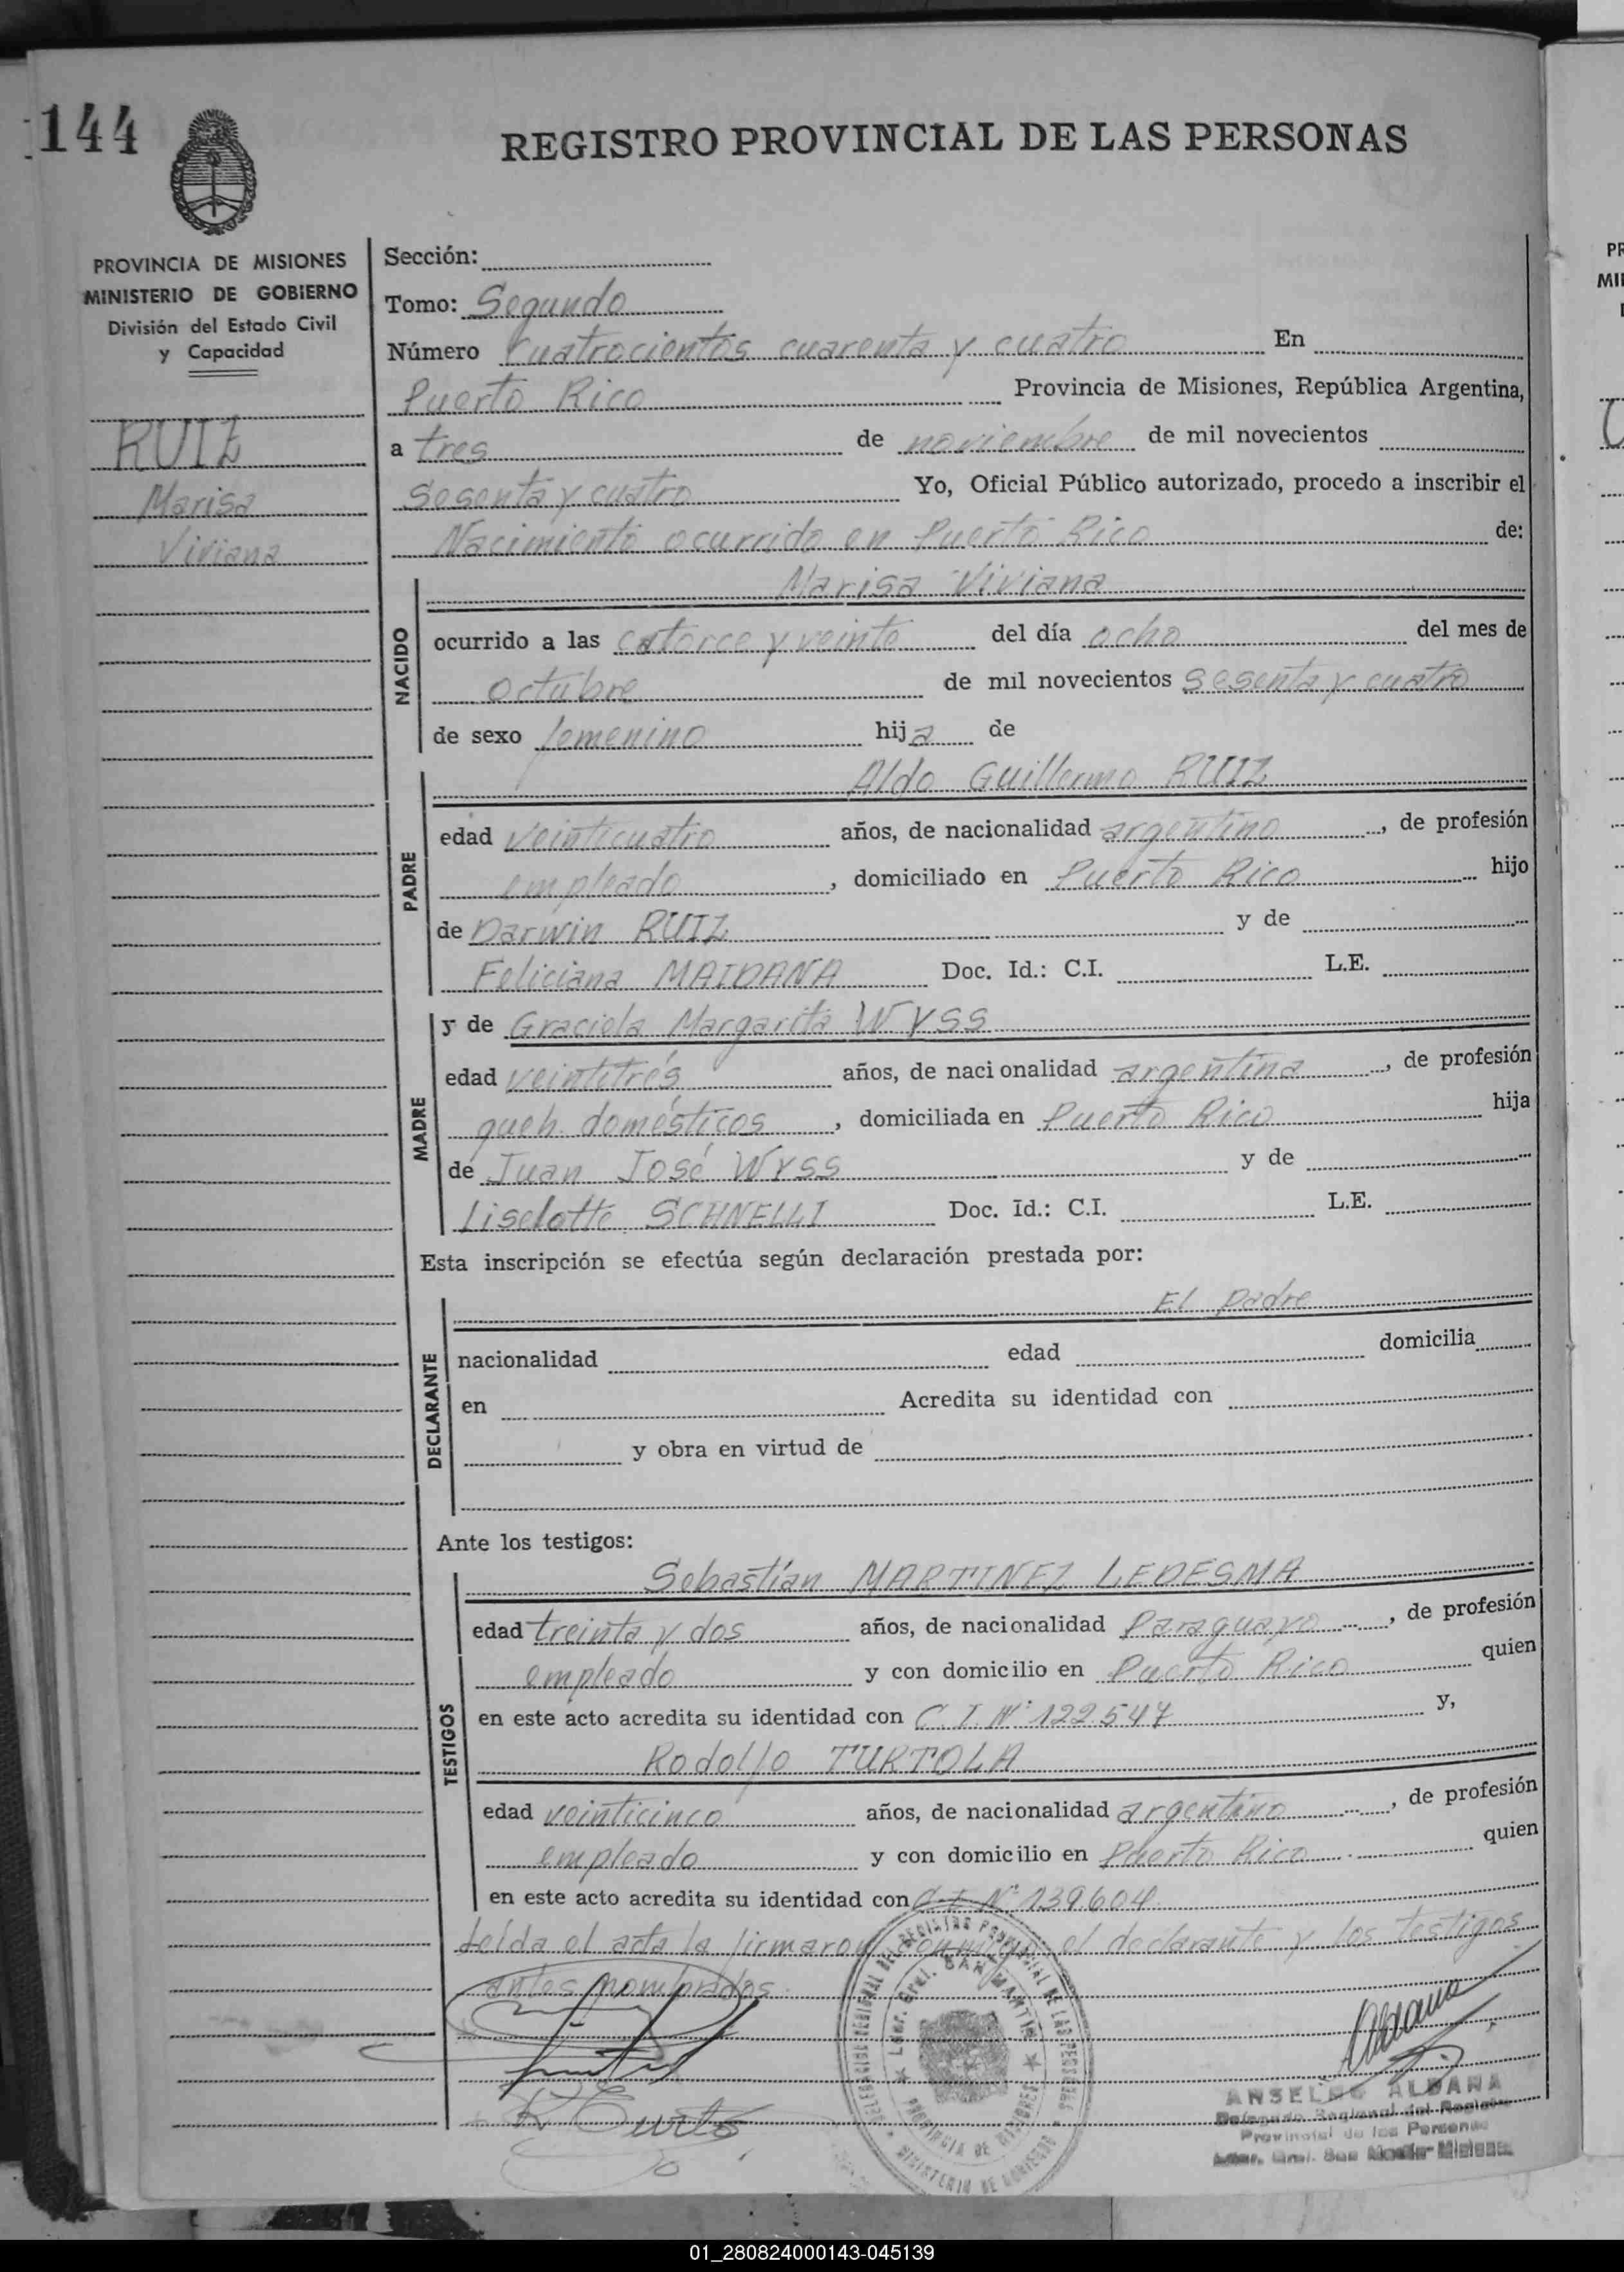 144
REGISTRO PROVINCIAL DE LAS PERSONAS
PROVINCIA DE MISIONES
MINISTERIO DE GOBIERNO
División del Estado Civil
y Capacidad
RUIZ
Marisa
Viviana
Sección:
Tomo: Segundo
Número Cuatrocientos cuarenta y cuatro En
Puerto Rico Provincia de Misiones, República Argentina,
a tres de noviembre de mil novecientos
sesenta y cuatro Yo, Oficial Público autorizado, procedo a inscribir el
Nacimiento ocurrido en Puerto Rico de:
NACIDO
Marisa Viviana
ocurrido a las catorce y veinte del día ocho del mes de
octubre de mil novecientos sesenta y cuatro
de sexo femenino hija de
PADRE
Aldo Guillermo RUIZ
edad veinticuatro años, de nacionalidad argentino, de profesión
empleado, domiciliado en Puerto Rico hijo
de Darwin RUIZ y de
Feliciana MAIDANA Doc. Id.: C.I. L.E.
MADRE
y de Graciela Margarita WYSS
edad veintitrés años, de nacionalidad argentina, de profesión
queh. domésticos, domiciliada en Puerto Rico hija
de Juan José WYSS y de
Liselotte SCHNELLI Doc. Id.: C.I. L.E.
Esta inscripción se efectúa según declaración prestada por:
DECLARANTE
El padre
nacionalidad edad domicilia
en Acredita su identidad con
y obra en virtud de
Ante los testigos:
TESTIGOS
Sebastían MARTINEZ LEDESMA
edad treinta y dos años, de nacionalidad Paraguayo, de profesión
empleado y con domicilio en Puerto Rico quien
en este acto acredita su identidad con C.I. Nº 122.547 y,
Rodolfo TURTOLA
edad veinticinco años, de nacionalidad argentino, de profesión
empleado y con domicilio en Puerto Rico quien
en este acto acredita su identidad con C.I. Nº 139.604.
Leída el acta la firmaron conmigo el declarante y los testigos
antes nombrados.
Aldana
ANSELMO ALDANA
Delegado Regional del Registro
Provincial de las Personas
Lder. Gral. San Martín-Misiones
DELEGACION REGIONAL DEL REGISTRO PROVINCIAL DE LAS PERSONAS
Lder. Gral. SAN MARTIN
PROVINCIA DE MISIONES
MINISTERIO DE GOBIERNO
PR
MII
01_280824000143-045139